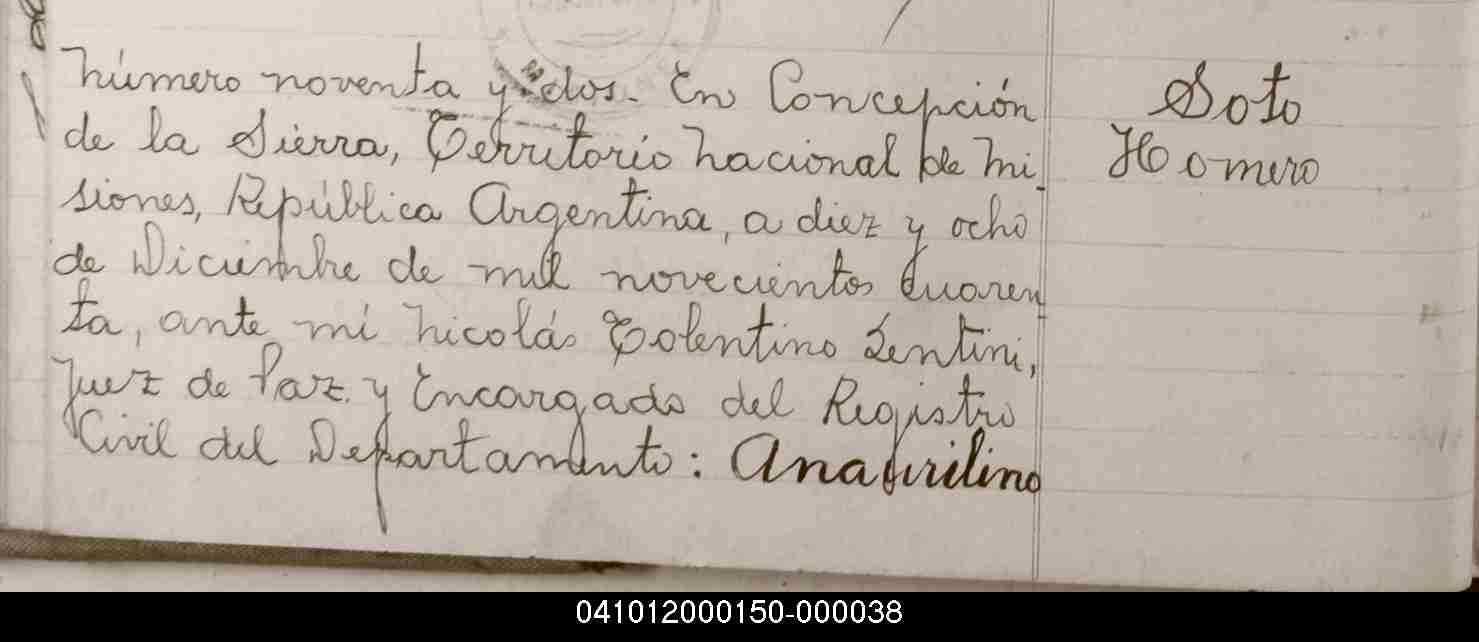 Número noventa y dos. En Concepción
de la Sierra, Territorio Nacional de Mi-
siones, República Argentina, a diez y ocho
de Diciembre de mil novecientos cuaren-
ta, ante mi Nicolás Tolentino Lentini,
Juez de Paz y Encargado del Registro
Civil del Departamento:
Soto
Homero
041012000150-000038